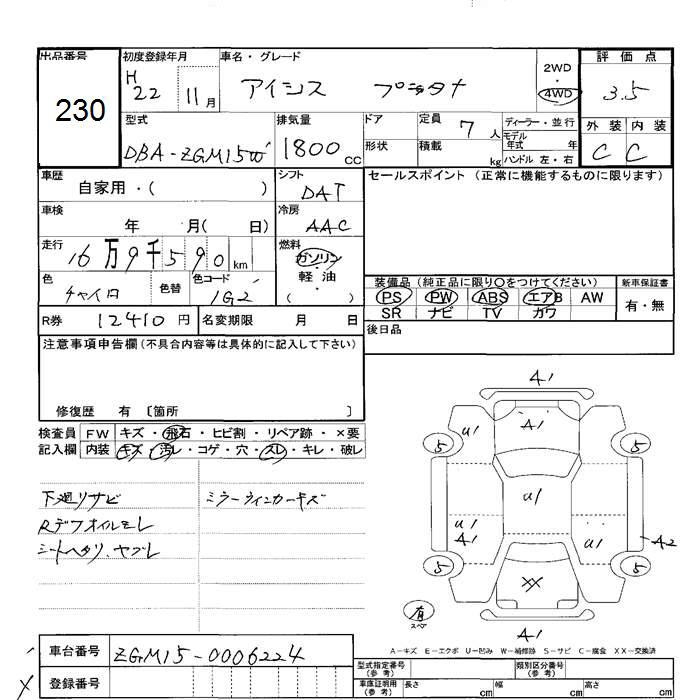 出品番号
230
初度登録年月
H 22 11月
車名・グレード
アイシス プラタナ
2WD
・
4WD
評価点
3.5
外装 内装
C C
型式
DBA-ZGM15W
排気量
1800cc
ドア
形状
定員 7人
積載 kg
ディーラー・並行
モデル年式 年
ハンドル 左・右
車歴
自家用・( )
シフト
DAT
セールスポイント (正常に機能するものに限ります)
車検
年 月( 日)
冷房
AAC
走行
16万9千590km
燃料
ガソリン
・
軽・油
( )
色
チャイロ
色替
色コード
1G2
装備品(純正品に限り○をつけてください)
PS PW ABS エアB AW
SR ナビ TV カワ
新車保証書
有・無
R券 12410円
名変期限 月 日
後日品
注意事項申告欄(不具合内容等は具体的に記入して下さい)
修復歴 有〔箇所 〕
検査員 FW キズ・飛石・ヒビ割・リペア跡・×要
記入欄 内装 キズ・汚レ・コゲ・穴・スレ・キレ・破レ
下廻りサビ
Rデフオイルモレ
シートヘタリ、ヤブレ
ミラーウィンカーキズ
A1
U1 A1
5 5
U1
U1 A1
U1
A2
5 5
XX
有
スペア
A1
A-キズ E-エクボ U-凹み W-補修跡 S-サビ C-腐食 XX-交換済
車台番号 ZGM15-0006224
登録番号
型式指定番号(参考)
類別区分番号(参考)
車庫証明用(参考) 長さ cm 幅 cm 高さ cm